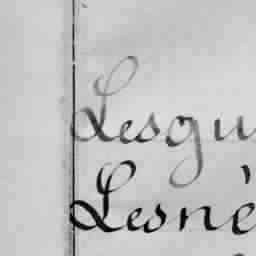 Lesgu
Lesné